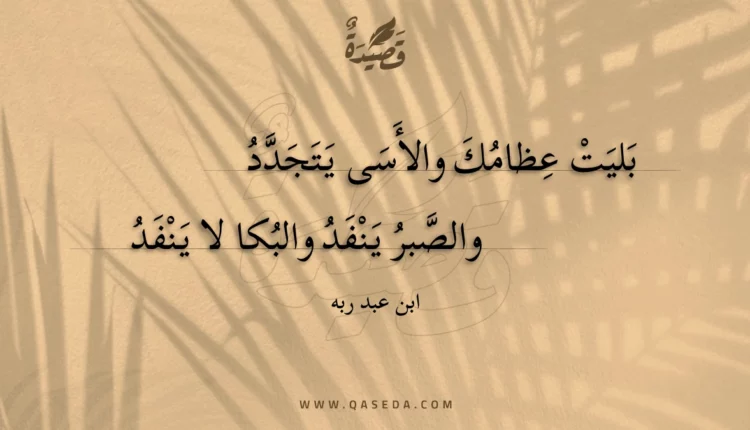 قَصِيْدَةٌ
بَليَتْ عِظامُكَ والأَسَى يَتَجَدَّدُ
والصَّبرُ يَنْفَدُ والبُكا لا يَنْفَدُ
ابن عبد ربه
WWW.QASEDA.COM